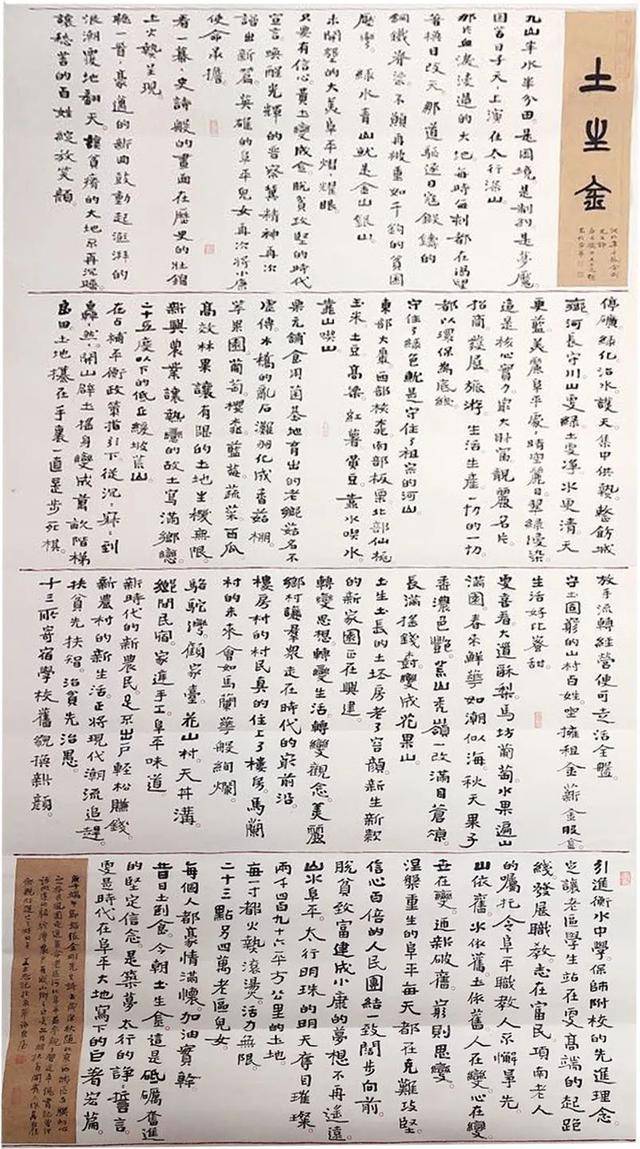 土生金
九山半水半分田是困境是制約是夢魔
因苦日子天上演在太行深山
那於血浸透過的大地每時每刻都在渴望
著換日改天那道驅逐日寇鍛鑄的
鋼鐵脊梁不願再被重如千鈞的貧困
壓彎綠水青山就是金山銀山
未開墾的大美阜平熠耀眼
只要有信心黃土變成金脫貧攻堅的時代
宣言喚醒光輝的晋察冀精神再次
譜出新篇英雄的阜平兒女再次將小康
使命承擔
看一幕史詩般的畫面在歷史的壯錦
上火熱呈現
聽一首豪邁的新曲鼓動起澎湃的
浪潮覆地翻天讓貧瘠的大地不再沉睡
讓愁苦的百姓綻放笑顔
停礦綠化治水護天集中供熱整飭城
鄉河長守川山更綠土更淨水更清天
更藍美麗阜平蒙晴空麗日翠綠浸染
這是核心實力最大財富靚麗名片
招商發展旅游生活生産一切的一切
都以環保爲底綫
守住了綠色就是守住了祖宗的河山
東部大棗西部核桃南部板栗北部仙桃
玉米土豆高粱紅薯黄豆靠水喫水
靠山喫山
栗元鋪食用菌基地育出的老鄉菇名不
虛傳水橋的亂石灘羽化成香菇棚
苹果園葡萄櫻桃藍莓蔬菜西瓜
高效林果讓有限的土地生機無限
新興農業讓熱戀的故土寫滿鄉戀
二十五度以下的低丘緩坡荒山
在占補平衡政策指引下從沉寐到
轟然開山辟土搖身變成萬畝階梯
良田土地攥在手裏一直是步死棋
放手流轉經營便可走活全盤
守土固窮的山村百姓坐擁租金薪金股金
生活好比蜜甜
更喜看大道酥梨馬坊葡萄水果遍山
滿園春來鮮華如潮似海秋天果子
香濃色艷荒山禿嶺一改滿目蒼凉
長滿搖錢樹變成花果山
土生土長的土坯房老了容顔新生新款
的新家園正在興建
轉變思想轉變生活轉變觀念美麗
鄉村讓羣衆走在時代的最前沿
樓房村的村民真的住上了樓房馬蘭
村的未來會如馬蘭華般絢爛
駱駝灣顧家臺花山村天井溝
鄉間民宿家進手工阜平味道
新時代的新農民足不出户輕松賺錢
新農村的新生活正將現代潮流追趕
扶貧先扶智治貧先治愚
十三所寄宿學校舊貌換新顔
引進衡水中學保師附校的先進理念
定讓老區學生站在更高端的起跑
綫發展職教志在富民項南老人
的囑托令阜平職教人不懈畢先
山依舊水依舊土依舊人在變心在變
业在變通新破舊窮則思變
涅槃重生的阜平每天都在克難攻堅
信心百倍的人民團結一致闊步向前
脫貧致富建成小康的夢想不再遙遠
山水阜平太行明珠的明天奪目璀璨
兩千四百九十六平方公里的土地
每一寸都火熱滚燙活力無限
二十三點另四萬老區兒女
每個人都豪情滿懷加油實幹
昔日土刨食今朝土生金這是砥礪奮進
的堅定信念是築夢太行的諍誓言
更是時代在阜平大地寫下的巨著宏篇